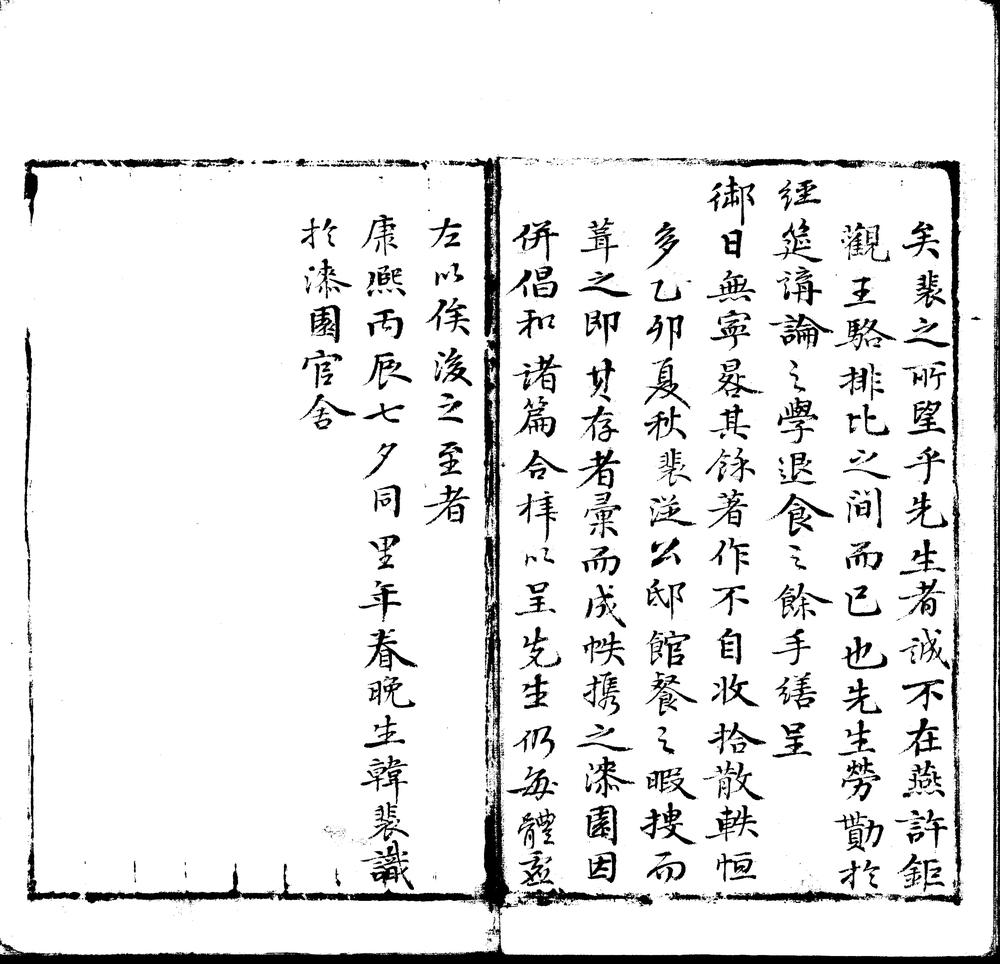 矣裴之所望乎先生者誠不在燕許鉅
觀王駱排比之間而已也先生勞勩於
經筵講論之學退食之餘手繕呈
御日無寧晷其餘著作不自收拾散軼恒
多乙卯夏秋裴從公邸館餐之暇搜而
葺之即其存者彙而成帙携之漆園因
併倡和諸篇合梓以呈先生仍每體
左以俟後之至者
康熙丙辰七夕同里年眷晚生韓裴識
於漆園官舍